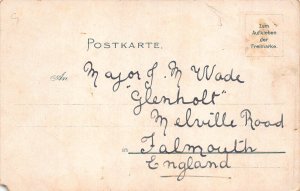 Zum
Aufkleben
der
Freimarke.
POSTKARTE.
An Major J. M Wade
"Glenholt"
Melville Road
in Falmouth
England